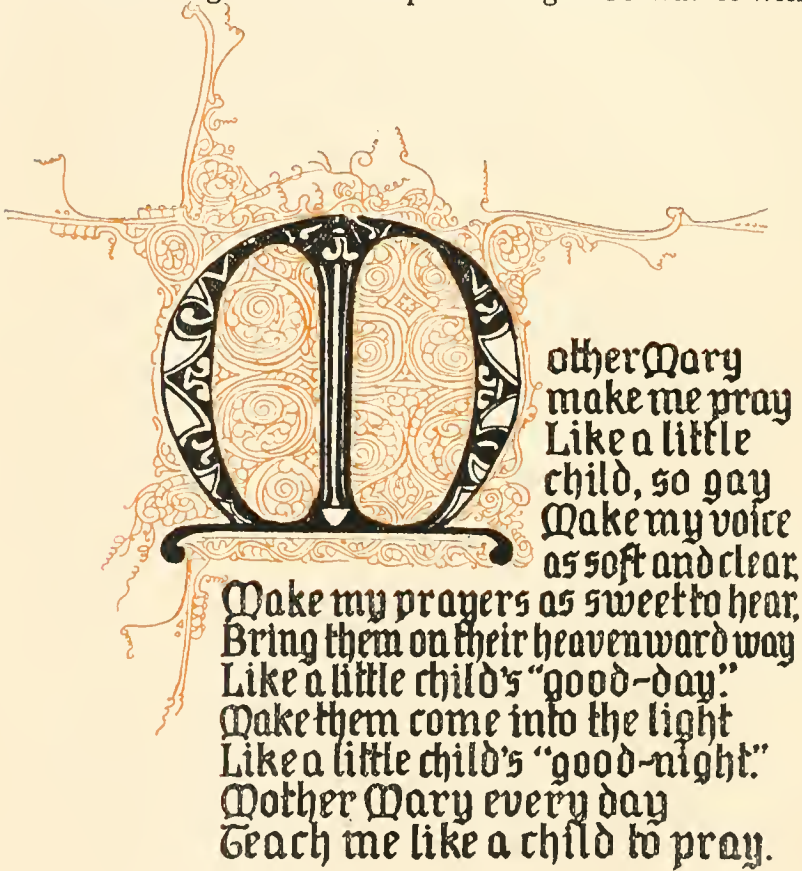 Mother Mary
make me pray
Like a little
child, so gay
Make my voice
as soft and clear,
Make my prayers as sweet to hear,
Bring them on their heavenward way
Like a little child's "good-day."
Make them come into the light
Like a little child's "good-night."
Mother Mary every day
Teach me like a child to pray.